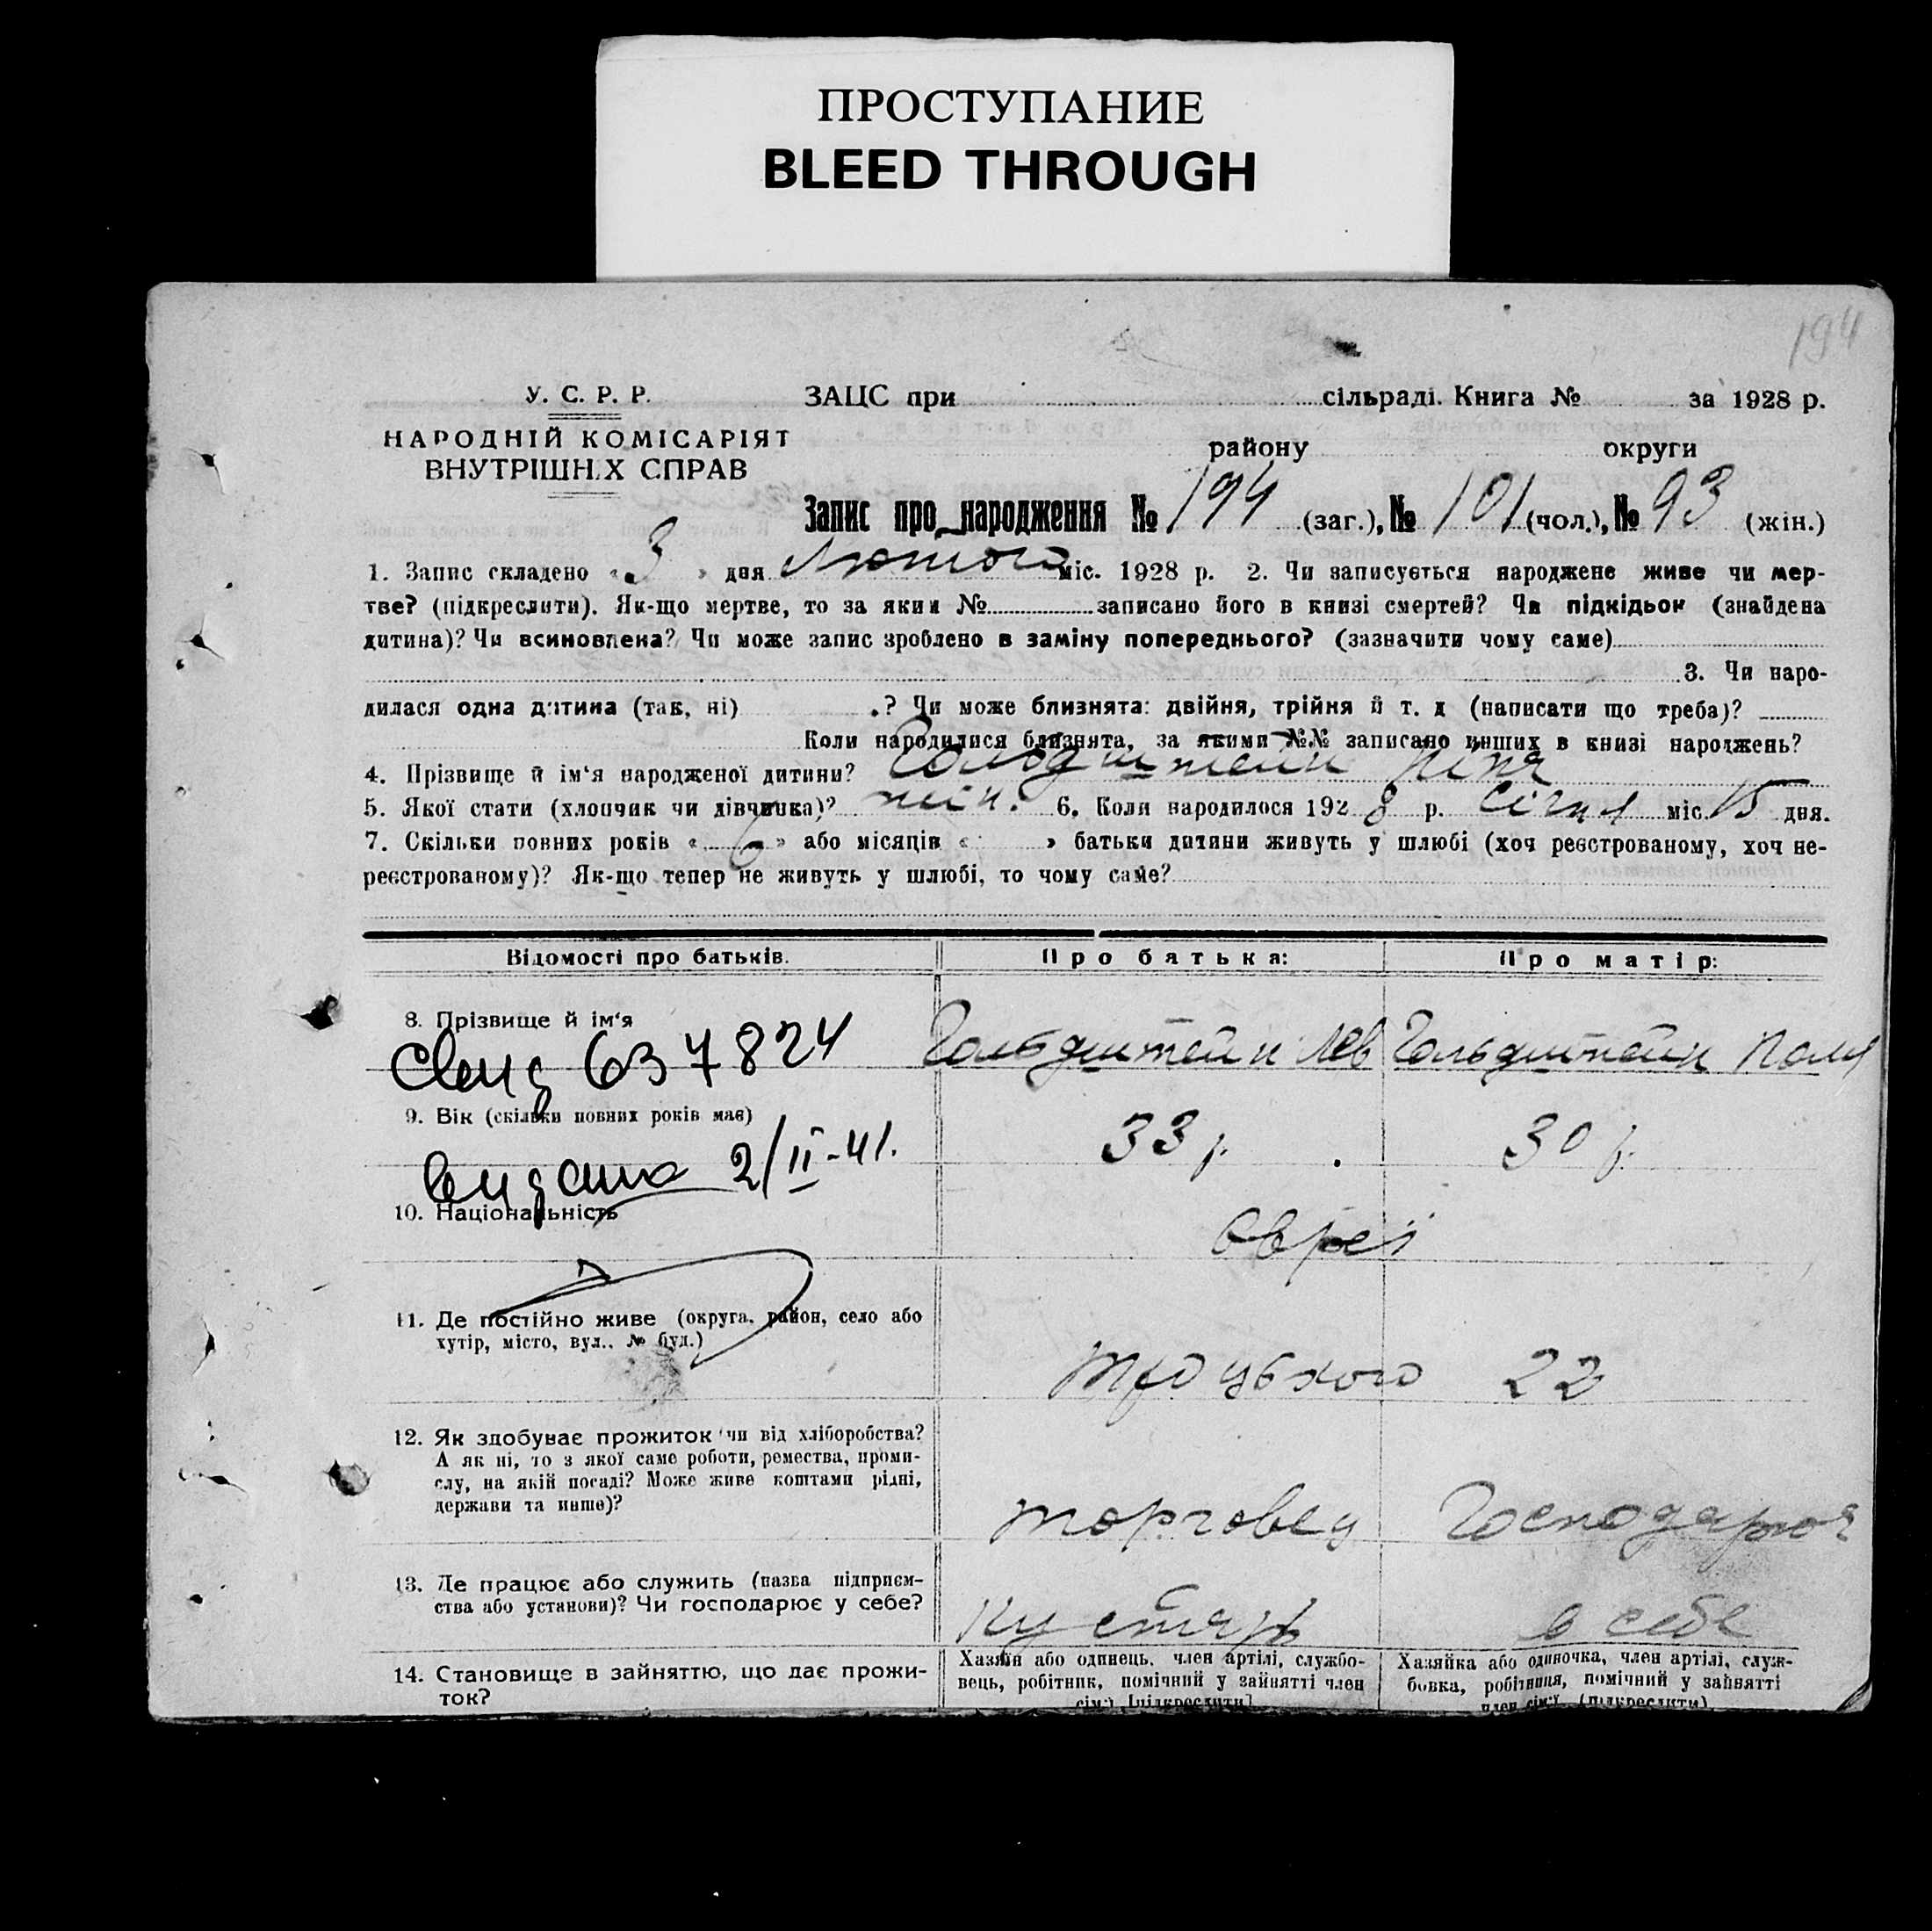 ПРОСТУПАНИЕ
BLEED THROUGH
194
У. С. Р. Р.
НАРОДНІЙ КОМІСАРІЯТ
ВНУТРІШНІХ СПРАВ
ЗАЦС при сільраді. Книга № за 1928 р.
району округи
Запис про народження № 194 (заг.), № 101 (чол.), № 93 (жін.)
1. Запис складено « 3 » дня Лютого міс. 1928 р. 2. Чи записується народжене живе чи мер-
тве? (підкреслити). Як-що мертве, то за яким № записано його в книзі смертей? Чи підкідьок (знайдена
дитина)? Чи всиновлена? Чи може запис зроблено в заміну попереднього? (зазначити чому саме)
3. Чи наро-
дилася одна дитина (так, ні) ? Чи може близнята: двійня, трійня й т. д (написати що треба)?
Коли народилися близнята, за якими №№ записано инших в книзі народжень?
4. Прізвище й ім‘я народженої дитини? Гольдштейн
5. Якої стати (хлопчик чи дівчинка)? жін. 6. Коли народилося 1928 р. Січня міс. 15 дня.
7. Скільки повних років « 6 » або місяців « » батьки дитини живуть у шлюбі (хоч реєстрованому, хоч не-
реєстрованому)? Як-що тепер не живуть у шлюбі, то чому саме?
Відомості про батьків. Про батька: Про матір:
8. Прізвище й ім‘я Гольдштейн Лев Гольдштейн Поля
637824
9. Вік (скільки повних років має) 33 р. 30 р.
видано 2/II-41.
10. Національність Євреї
11. Де постійно живе (округа, район, село або
хутір, місто, вул., № буд.)
Троцького 22
12. Як здобуває прожиток чи від хліборобства?
А як ні, то з якої саме роботи, ремества, проми-
слу, на якій посаді? Може живе коштами рідні,
держави та инше)?
торговец Господарює
13. Де працює або служить (назва підприєм-
ства або установи)? Чи господарює у себе?
Кустарь в себе
14. Становище в зайняттю, що дає прожи-
ток?
Хазяїн або одинець, член артілі, службо-
вець, робітник, помічний у зайнятті член
сім'ї [підкреслити]
Хазяйка або одиночка, член артілі, служ-
бовка, робітниця, помічний у зайнятті
член сім'ї (підкреслити)